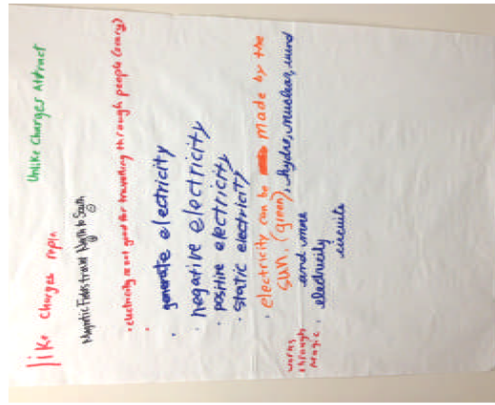 like Charges reple
Unlike Charges Attract
Magnetic Fields travel North to South
• electricity is not good for travelling through people (scary)
• generate electricity
• negative electricity
• positive electricity
• static electricity
• electricity can be made by the
sun, (green), hydro, nuclear, wind
and more
works through Magic.
• electricity
circuits